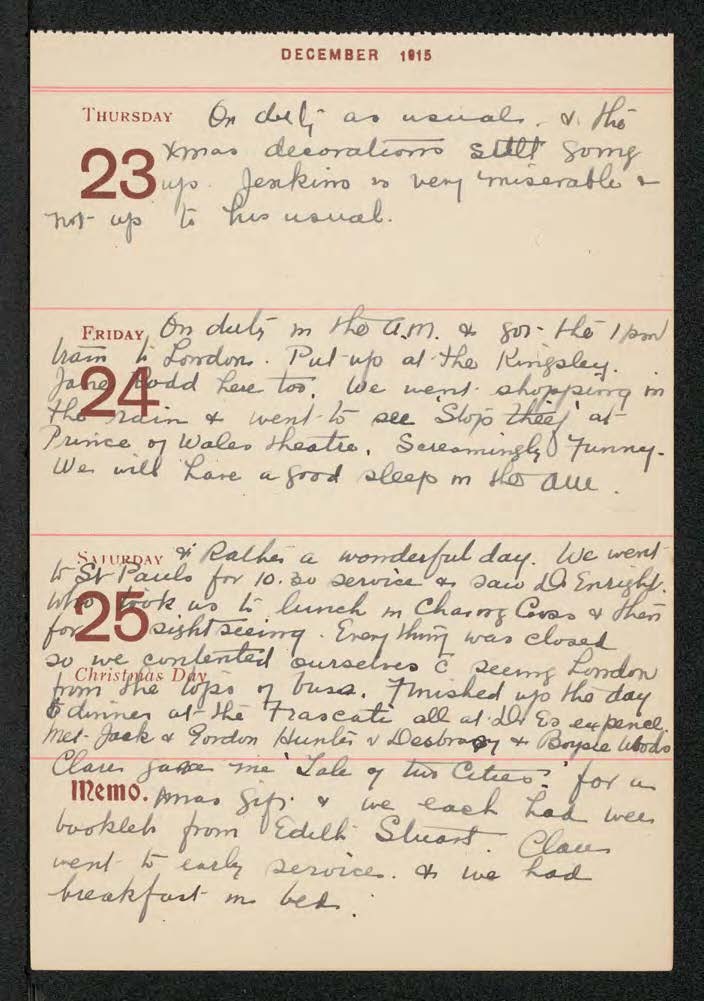 DECEMBER 1915
THURSDAY On duty as usual. & the
23 Xmas decorations still going
up. Jenkins is very miserable &
not up to his usual.
FRIDAY On duty in the A.M. & got the 1 pm
train to London. Put up at the Kingsley.
Jane Todd here too. We went shopping in
24
the rain & went to see 'Stop thief' at
Prince of Wales theatre. Screamingly funny.
We will have a good sleep in the AM.
SATURDAY Rather a wonderful day. We went
to St Pauls for 10.30 service & saw Dr Enright.
who took us to lunch in Charing Cross & then
25
for sightseeing. Everything was closed
so we contented ourselves c seeing London
Christmas Day
from the tops of buses. Finished up the day
c dinner at the Frascati all at Dr Es expence.
Met Jack & Gordon Hunter & & Boysie Woods
Clare gave me 'Tale of two Cities' for a
Memo. Xmas gift & we each had wee
booklets from Edith Stuart. Clare
went to early service. & we had
breakfast in bed.